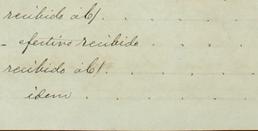 recibido á C/.
- efectivo recibido . . . .
recibido á C/. . . . .
idem . . . . . .